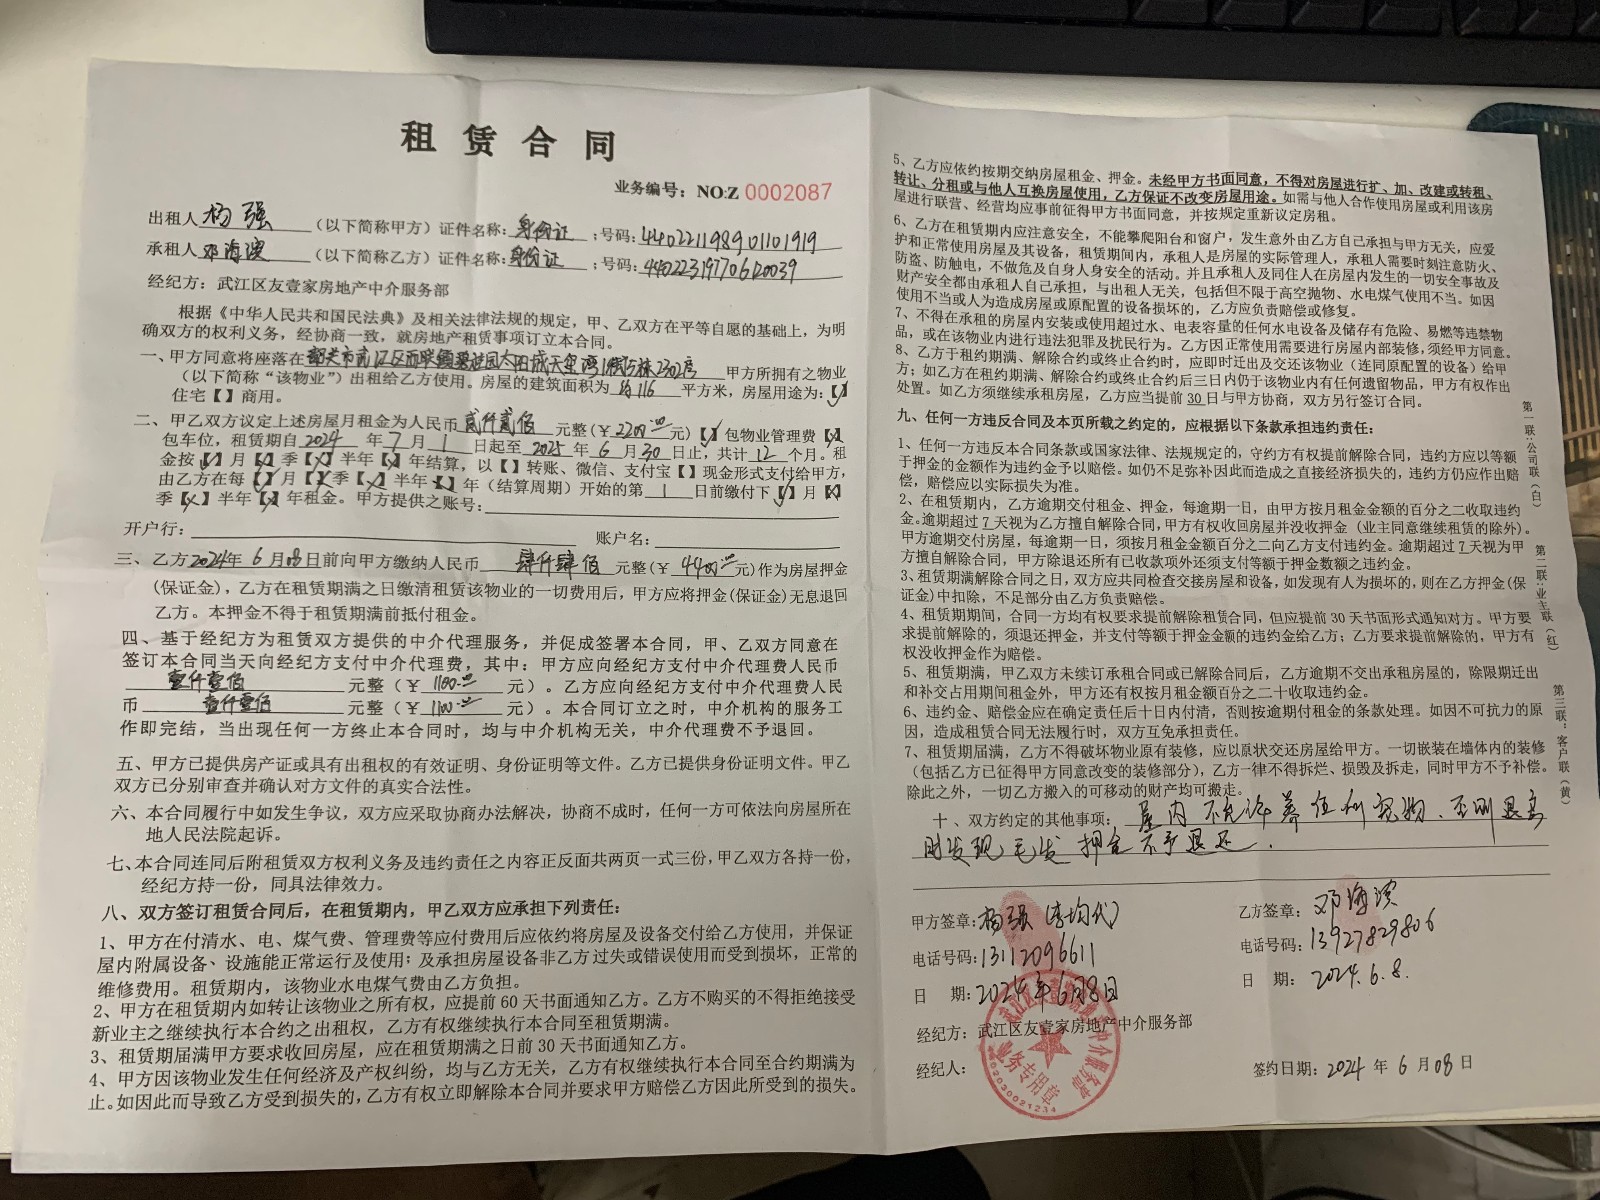 租赁合同
业务编号：NO:Z 0002087
出租人杨强（以下简称甲方）证件名称：身份证；号码：440221198901101919
承租人邓海滨（以下简称乙方）证件名称：身份证；号码：440223197706120039
经纪方：武江区友壹家房地产中介服务部
根据《中华人民共和国民法典》及相关法律法规的规定，甲、乙双方在平等自愿的基础上，为明
确双方的权利义务，经协商一致，就房地产租赁事项订立本合同。
一、甲方同意将座落在韶关市武江区西联镇碧桂园太阳城天玺湾 栋2302房 甲方所拥有之物业
（以下简称“该物业”）出租给乙方使用。房屋的建筑面积为 约116 平方米，房屋用途为：【√】
住宅【 】商用。
二、甲乙双方议定上述房屋月租金为人民币 贰仟贰佰 元整(￥2200.00元)【√】包物业管理费【×】
包车位，租赁期自 2024 年 7 月 1 日起至 2025 年 6 月 30 日止，共计 12 个月。租
金按【√】月【×】季【×】半年【×】年结算，以【 】转账、微信、支付宝【 】现金形式支付给甲方，
由乙方在每【√】月【×】季【×】半年【×】年（结算周期）开始的第 1 日前缴付下【√】月【×】
季【×】半年【×】年租金。甲方提供之账号：
开户行： 账户名：
三、乙方2024年 6 月08日前向甲方缴纳人民币 肆仟肆佰 元整(￥ 4400.00元)作为房屋押金
(保证金)，乙方在租赁期满之日缴清租赁该物业的一切费用后，甲方应将押金(保证金)无息退回
乙方。本押金不得于租赁期满前抵付租金。
四、基于经纪方为租赁双方提供的中介代理服务，并促成签署本合同，甲、乙双方同意在
签订本合同当天向经纪方支付中介代理费，其中：甲方应向经纪方支付中介代理费人民币
壹仟壹佰 元整（￥ 1100.00 元）。乙方应向经纪方支付中介代理费人民
币 壹仟壹佰 元整（￥ 1100.00 元）。本合同订立之时，中介机构的服务工
作即完结，当出现任何一方终止本合同时，均与中介机构无关，中介代理费不予退回。
五、甲方已提供房产证或具有出租权的有效证明、身份证明等文件。乙方已提供身份证明文件。甲乙
双方已分别审查并确认对方文件的真实合法性。
六、本合同履行中如发生争议，双方应采取协商办法解决，协商不成时，任何一方可依法向房屋所在
地人民法院起诉。
七、本合同连同后附租赁双方权利义务及违约责任之内容正反面共两页一式三份，甲乙双方各持一份，
经纪方持一份，同具法律效力。
八、双方签订租赁合同后，在租赁期内，甲乙双方应承担下列责任：
1、甲方在付清水、电、煤气费、管理费等应付费用后应依约将房屋及设备交付给乙方使用，并保证
屋内附属设备、设施能正常运行及使用；及承担房屋设备非乙方过失或错误使用而受到损坏，正常的
维修费用。租赁期内，该物业水电煤气费由乙方负担。
2、甲方在租赁期内如转让该物业之所有权，应提前 60 天书面通知乙方。乙方不购买的不得拒绝接受
新业主之继续执行本合约之出租权，乙方有权继续执行本合同至租赁期满。
3、租赁期届满甲方要求收回房屋，应在租赁期满之日前 30 天书面通知乙方。
4、甲方因该物业发生任何经济及产权纠纷，均与乙方无关，乙方有权继续执行本合同至合约期满为
止。如因此而导致乙方受到损失的，乙方有权立即解除本合同并要求甲方赔偿乙方因此所受到的损失。
5、乙方应依约按期交纳房屋租金、押金。未经甲方书面同意，不得对房屋进行扩、加、改建或转租、
转让、分租或与他人互换房屋使用，乙方保证不改变房屋用途。如需与他人合作使用房屋或利用该房
屋进行联营、经营均应事前征得甲方书面同意，并按规定重新议定房租。
6、乙方在租赁期内应注意安全，不能攀爬阳台和窗户，发生意外由乙方自己承担与甲方无关，应爱
护和正常使用房屋及其设备，租赁期间内，承租人是房屋的实际管理人，承租人需要时刻注意防火、
防盗、防触电，不做危及自身人身安全的活动。并且承租人及同住人在房屋内发生的一切安全事故及
财产安全都由承租人自己承担，与出租人无关，包括但不限于高空抛物、水电煤气使用不当。如因
使用不当或人为造成房屋或原配置的设备损坏的，乙方应负责赔偿或修复。
7、不得在承租的房屋内安装或使用超过水、电表容量的任何水电设备及储存有危险、易燃等违禁物
品，或在该物业内进行违法犯罪及扰民行为。乙方因正常使用需要进行房屋内部装修，须经甲方同意。
8、乙方于租约期满、解除合约或终止合约时，应即时迁出及交还该物业（连同原配置的设备）给甲
方；如乙方在租约期满、解除合约或终止合约后三日内仍于该物业内有任何遗留物品，甲方有权作出
处置。如乙方须继续承租房屋，乙方应当提前 30 日与甲方协商，双方另行签订合同。
九、任何一方违反合同及本页所载之约定的，应根据以下条款承担违约责任：
1、任何一方违反本合同条款或国家法律、法规规定的，守约方有权提前解除合同，违约方应以等额
于押金的金额作为违约金予以赔偿。如仍不足弥补因此而造成之直接经济损失的，违约方仍应作出赔
偿，赔偿应以实际损失为准。
2、在租赁期内，乙方逾期交付租金、押金，每逾期一日，由甲方按月租金金额的百分之二收取违约
金。逾期超过 7 天视为乙方擅自解除合同，甲方有权收回房屋并没收押金（业主同意继续租赁的除外）。
甲方逾期交付房屋，每逾期一日，须按月租金金额百分之二向乙方支付违约金。逾期超过 7 天视为甲
方擅自解除合同，甲方除退还所有已收款项外还须支付等额于押金数额之违约金。
3、租赁期满解除合同之日，双方应共同检查交接房屋和设备，如发现有人为损坏的，则在乙方押金(保
证金)中扣除，不足部分由乙方负责赔偿。
4、租赁期期间，合同一方均有权要求提前解除租赁合同，但应提前 30 天书面形式通知对方。甲方要
求提前解除的，须退还押金，并支付等额于押金金额的违约金给乙方；乙方要求提前解除的，甲方有
权没收押金作为赔偿。
5、租赁期满，甲乙双方未续订承租合同或已解除合同后，乙方逾期不交出承租房屋的，除限期迁出
和补交占用期间租金外，甲方还有权按月租金额百分之二十收取违约金。
6、违约金、赔偿金应在确定责任后十日内付清，否则按逾期付租金的条款处理。如因不可抗力的原
因，造成租赁合同无法履行时，双方互免承担责任。
7、租赁期届满，乙方不得破坏物业原有装修，应以原状交还房屋给甲方。一切嵌装在墙体内的装修
（包括乙方已征得甲方同意改变的装修部分），乙方一律不得拆烂、损毁及拆走，同时甲方不予补偿。
除此之外，一切乙方搬入的可移动的财产均可搬走。
十、双方约定的其他事项：屋内不允许养任何宠物、否则退房
时发现毛发押金不予退还.
甲方签章：杨强（李均代）
电话号码：13112096611
日 期：2024年6月8日
乙方签章：邓海滨
电话号码：13927829806
日 期：2024.6.8.
经纪方：武江区友壹家房地产中介服务部
经纪人：
签约日期：2024 年 6 月 08 日
业务专用章
第一联：公司联（白）
第二联：业主联（红）
第三联：客户联（黄）